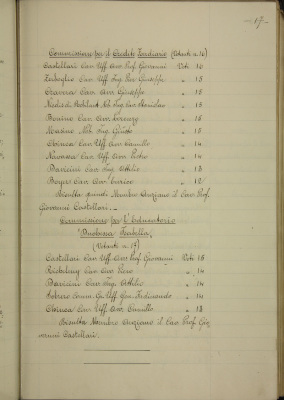 - 17 -
Commissione per il Credito Fondiario (Votanti n. 16)
Castellari Cav. Uff. Avv. Prof. Giovanni Voti 16
Cav. Uff. Ing. Giuseppe " 15
Cav. Avv. Giuseppe " 15
Nob. Ing. Cav. Stanislao " 15
Bonino Cav. Avv. Lorenzo " 15
Nob. Ing. Guido " 15
Cav. Uff. Avv. Camillo " 14
Cav. Uff. Avv. Pietro " 14
Cav. Ing. Attilio " 13
Cav. Avv. Enrico " 12
Risulta quindi Membro Anziano il Cav. Prof.
Giovanni Castellari. -
Commissione per l'Educatorio
"Duchessa Isabella"
(Votanti n. 17)
Castellari Cav. Uff. Avv. Prof. Giovanni Voti 16
Cav. Avv. Piero " 14
Cav. Ing. Attilio " 14
Comm. Gr. Uff. Gen. Ferdinando " 14
Cav. Uff. Avv. Camillo " 13
Risulta Membro Anziano il Cav. Prof. Gio-
vanni Castellari.